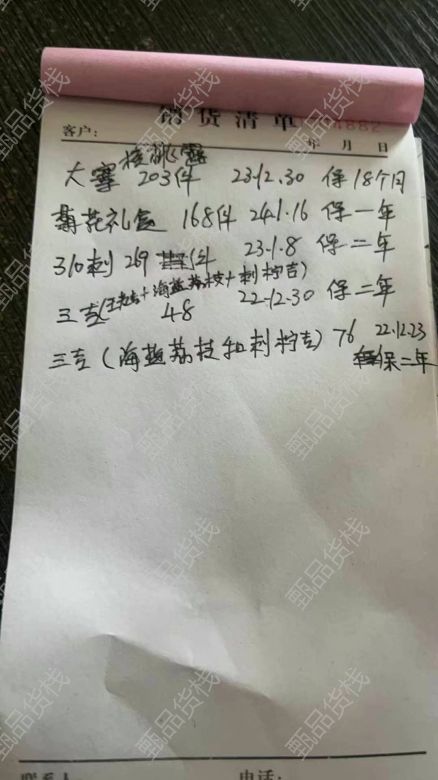 销货清单
客户: 年 月 日
大寨核桃露 203件 23.12.30 保18个月
菊花礼盒 168件 24.1.16 保一年
310刺 269 件 23.1.8 保二年
三吉(王老吉+海盐荔枝+刺柠吉) 48 22.12.30 保二年
三吉(海盐荔枝和刺柠吉) 76 22.12.23
保二年
联系人 电话:
甄品货栈